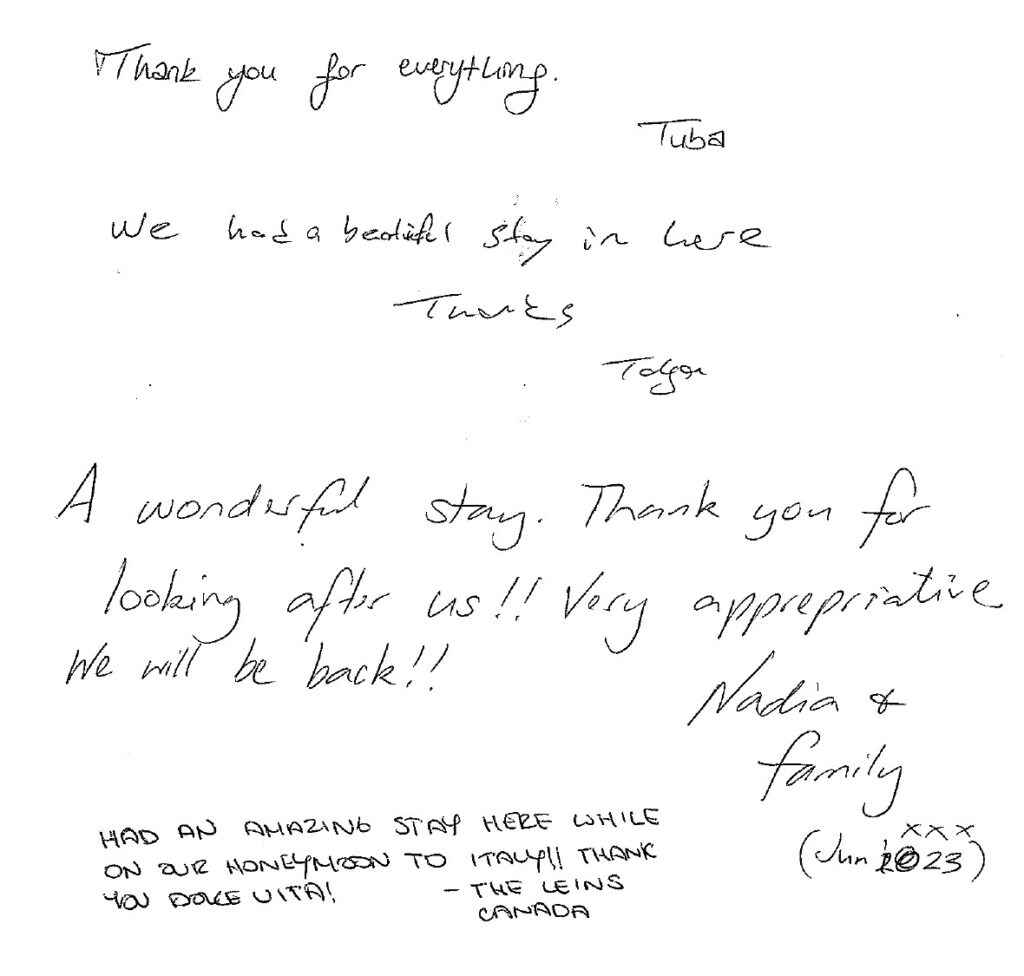 Thank you for everything.
Tuba
We had a beautiful stay in here
Thanks
Tolga
A wonderful stay. Thank you for
looking after us!! Very apprepriative
We will be back!!
Nadia &
family
xxx
(Jun 2023)
HAD AN AMAZING STAY HERE WHILE
ON OUR HONEYMOON TO ITALY!! THANK
YOU DOLCE VITA!
- THE LEINS
CANADA